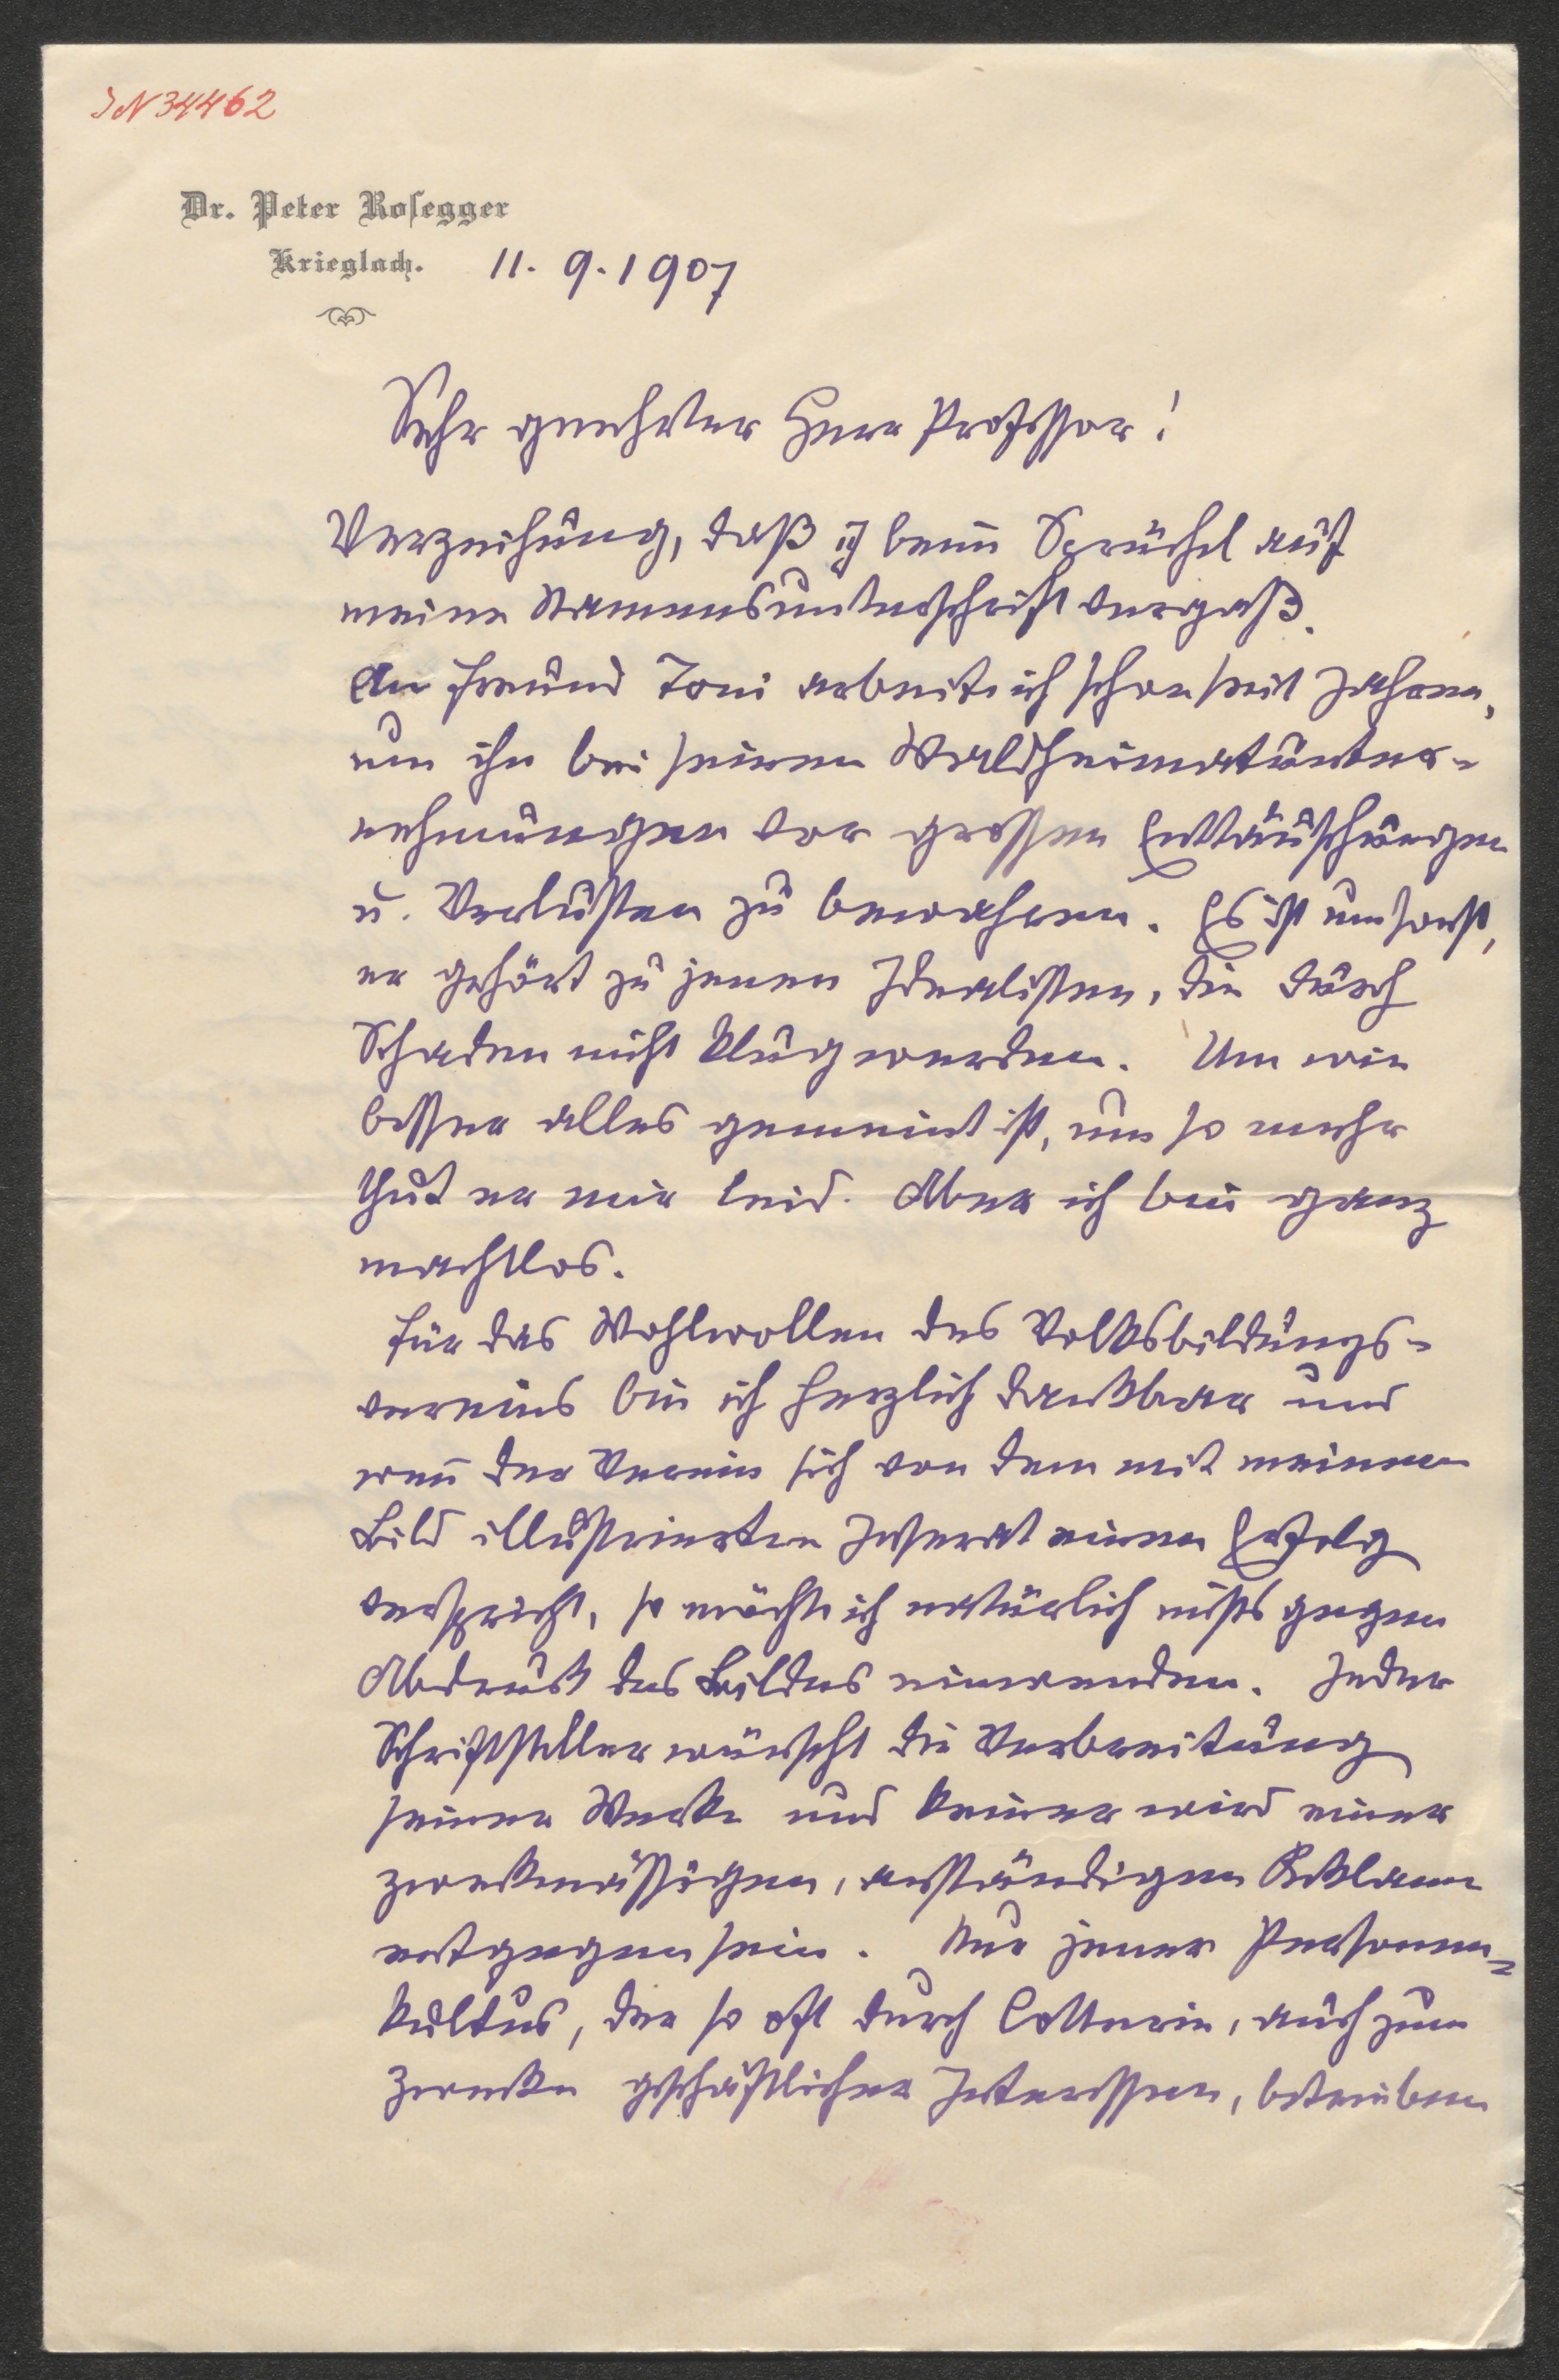 JN 34462
Dr. Peter Rosegger
Krieglach. 11. 9. 1907
Sehr geehrter Herr Professor!
Verzeihung, daß ich beim Sprüchel auf
meine Namensunterschrift vergaß.
An Freund Toni arbeite ich schon seit Jahren,
um ihn bei seinen Waldheimatunter-
nehmungen vor grossen Enttäuschungen
u. Verlusten zu bewahren. Es ist umsonst,
er gehört zu jenen Idealisten, die durch
Schaden nicht klug werden. Um wie
besser alles gemeint ist, um so mehr
thut er mir leid. Aber ich bin ganz
machtlos.
Für das Wohlwollen des Volksbildungs-
vereins bin ich herzlich dankbar und
wenn der Verein sich von dem mit meinem
Bild illustrierten Inserat einen Erfolg
verspricht, so möchte ich natürlich nichts gegen
Abdruck des Bildes einwenden. Jeder
Schriftsteller wünscht die Verbreitung
seiner Werke und keiner wird einer
zweckmässigen, anständigen Reklame
entgegen sein. Nur jener Personen-
kultus, der so oft durch Cotterie, auch zum
Zwecke geschäftlicher Interessen, betrieben